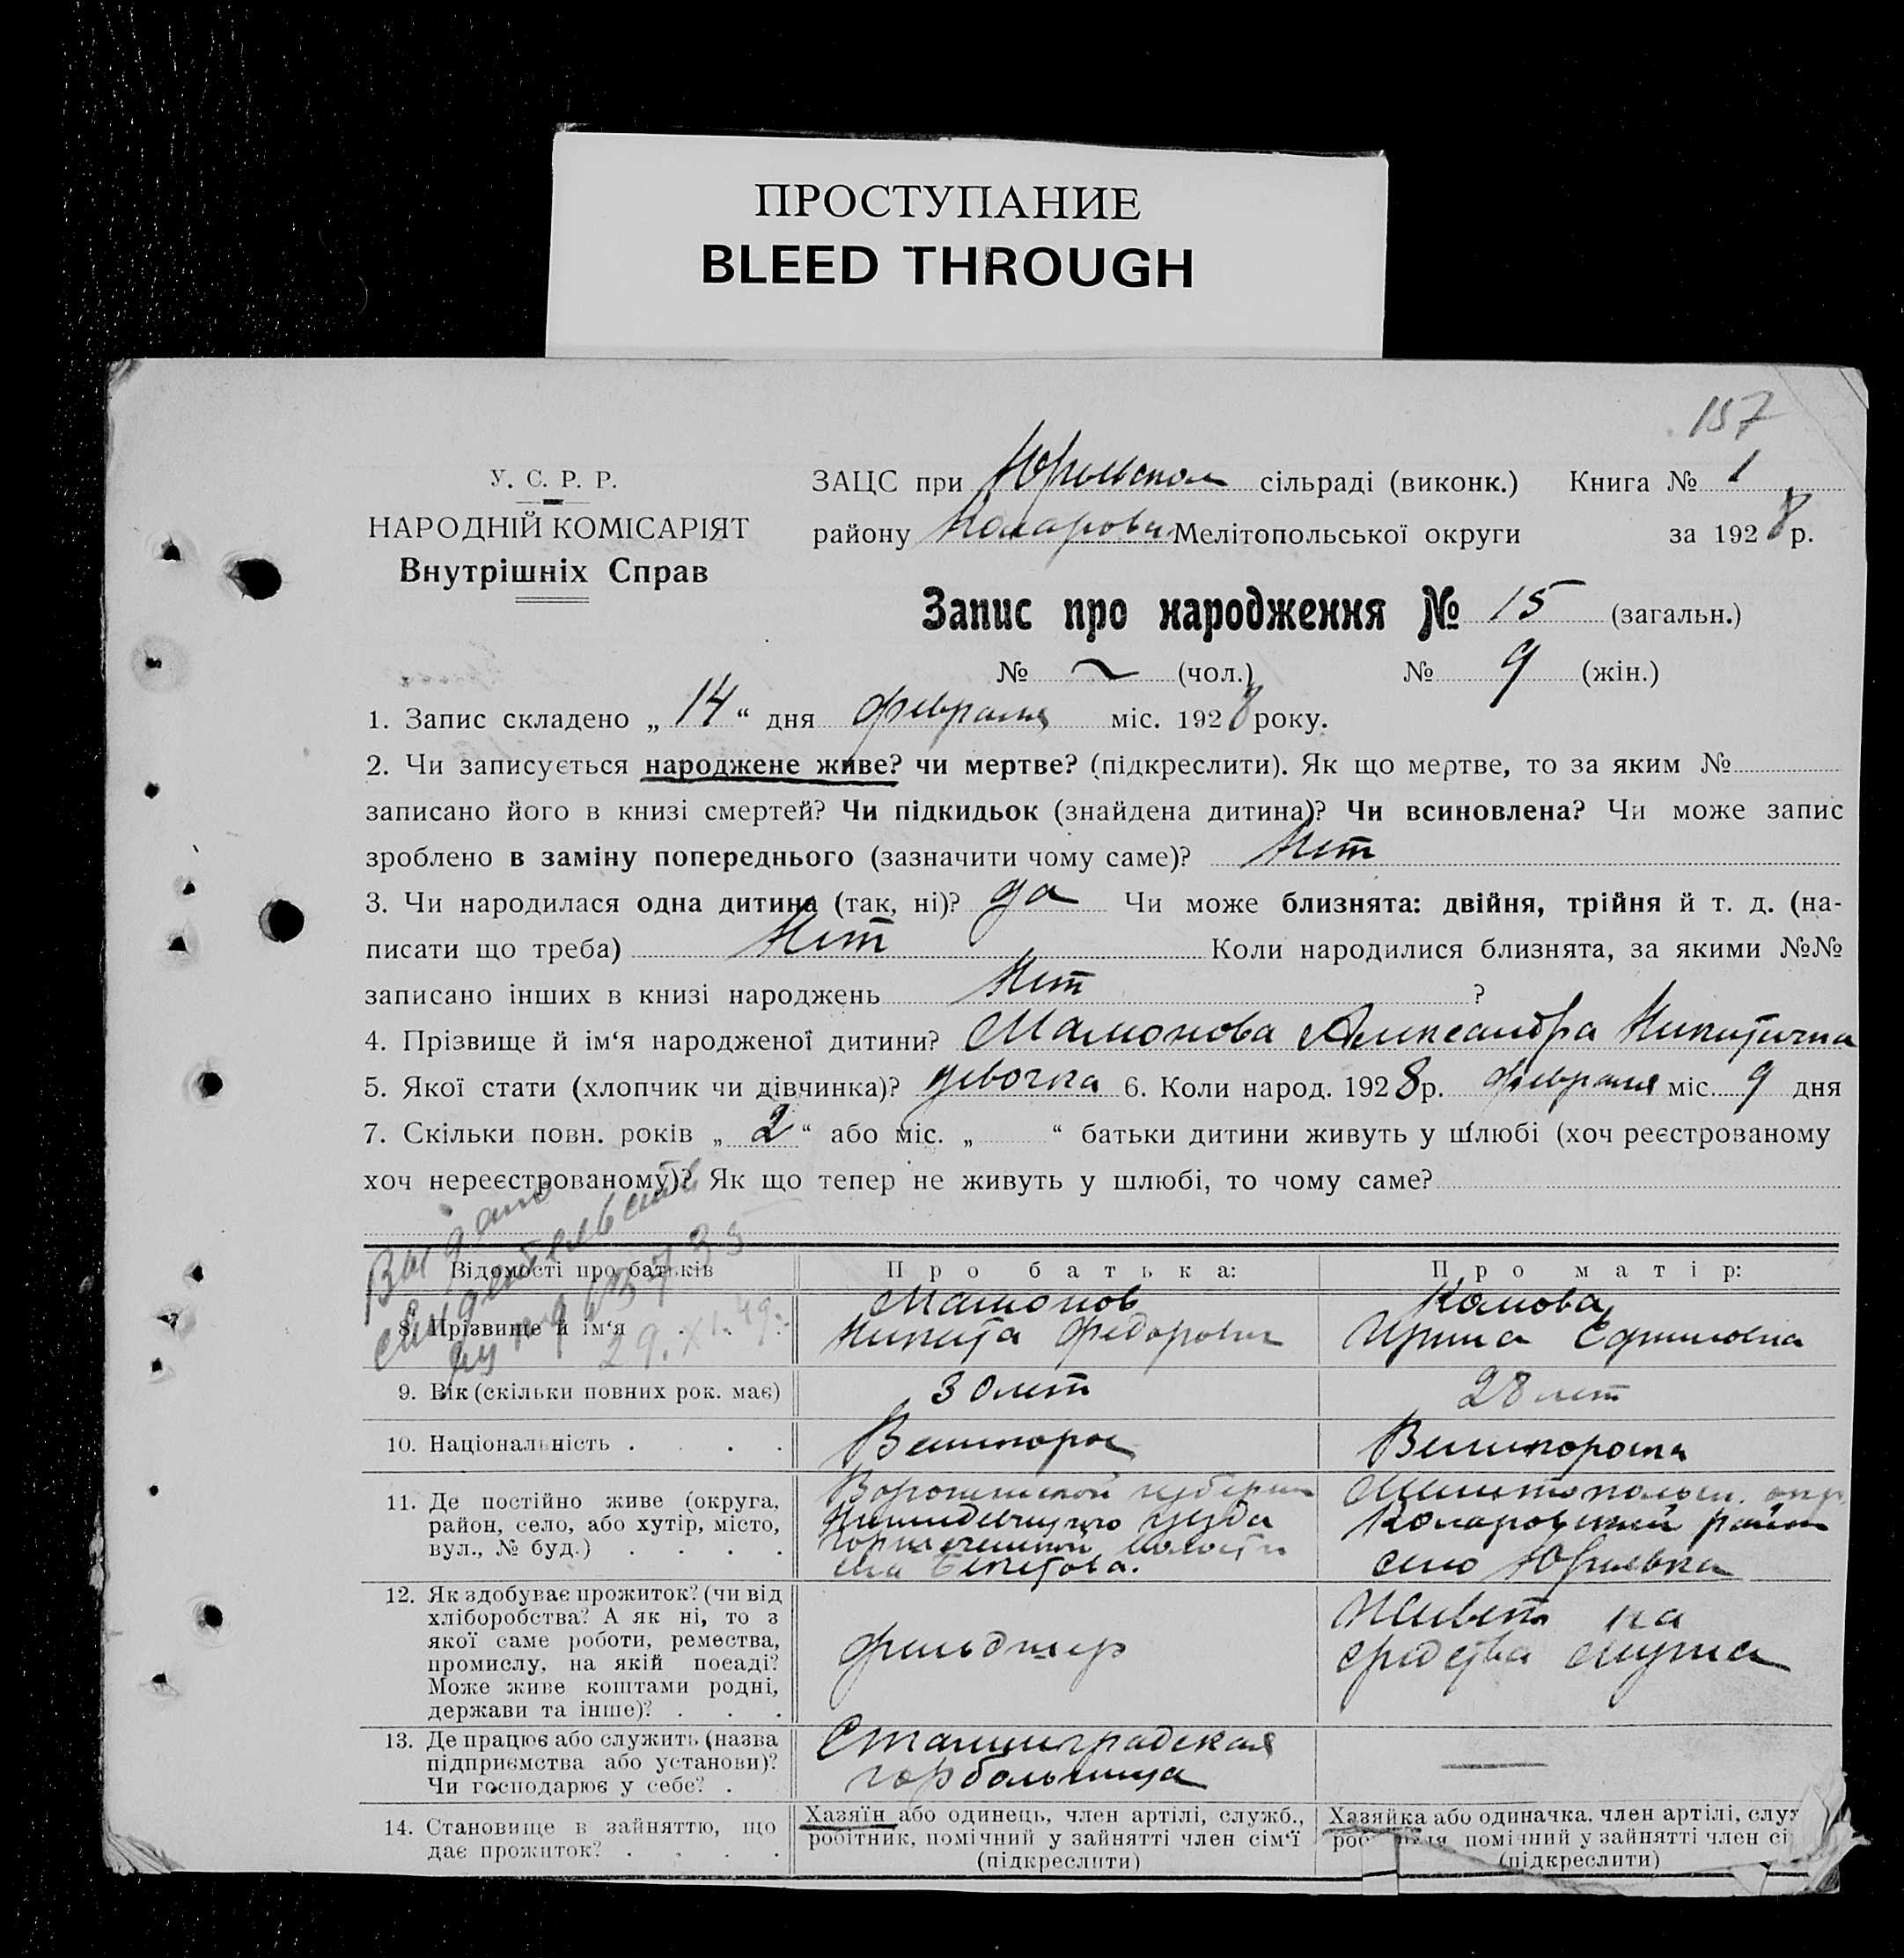 ПРОСТУПАНИЕ
BLEED THROUGH
157
У. С. Р. Р.
НАРОДНІЙ КОМІСАРІЯТ
Внутрішніх Справ
ЗАЦС при Юрьевском сільраді (виконк.) Книга № 1
району Коларовск Мелітопольської округи за 1928 р.
Запис про народження № 15 (загальн.)
№ ~ (чол.) № 9 (жін.)
1. Запис складено „ 14 “ дня февраля міс. 1928 року.
2. Чи записується народжене живе? чи мертве? (підкреслити). Як що мертве, то за яким №
записано його в книзі смертей? Чи підкидьок (знайдена дитина)? Чи всиновлена? Чи може запис
зроблено в заміну попереднього (зазначити чому саме)? Нет
3. Чи народилася одна дитина (так, ні)? да Чи може близнята: двійня, трійня й т. д. (на-
писати що треба) Нет Коли народилися близнята, за якими №№
записано інших в книзі народжень Нет ?
4. Прізвище й ім‘я народженої дитини? Мамонова Александра Никитична
5. Якої стати (хлопчик чи дівчинка)? девочка 6. Коли народ. 1928 р. февраля міс. 9 дня
7. Скільки повн. років „ 2 “ або міс. „ “ батьки дитини живуть у шлюбі (хоч реєстрованому
хоч нереєстрованому)? Як що тепер не живуть у шлюбі, то чому саме?
Выдано
свидетельство
29.XI.49.
Відомості про батьків Про батька: Про матір:
8. Прізвище й ім‘я . . . Мамонов Никита Федорович Комова Ирина Ефимовна
9. Вік (скільки повних рок. має) 30 лет 28 лет
10. Національність . . . . Великорос Великороска
11. Де постійно живе (округа,
район, село, або хутір, місто,
вул., № буд.) . . . .
Воронежской губернии
Нижнедевицкого уезда
Горшеченской волости
села Бекетова.
Мелитопольск. окр.
Коларовский район
село Юрьевка
12. Як здобуває прожиток? (чи від
хліборобства? А як ні, то з
якої саме роботи, ремества,
промислу, на якій посаді?
Може живе коштами родні,
держави та інше)? . . .
фельдшер
Живет на
средства мужа
13. Де працює або служить (назва
підприємства або установи)?
Чи господарює у себе? .
Сталинградская
горбольница
—
14. Становище в зайняттю, що
дає прожиток? . . . .
Хазяїн або одинець, член артілі, служб.,
робітник, помічний у зайнятті член сім‘ї
(підкреслити)
Хазяйка або одиначка, член артілі, служ
помічний у зайнятті член сі
(підкреслити)